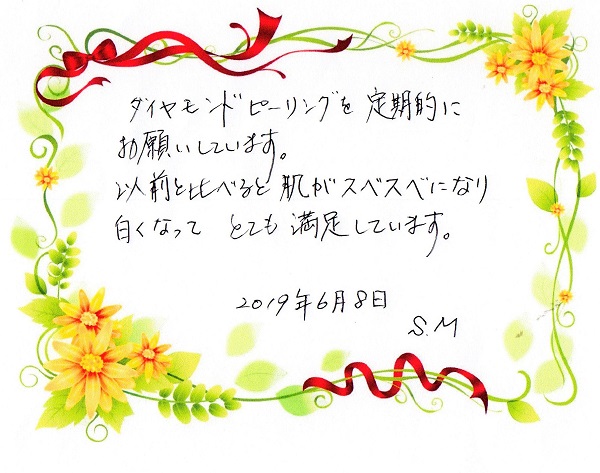 ダイヤモンドピーリングを定期的に
お願いしています。
以前と比べると肌がスベスベになり
白くなって とても満足しています。
2019年6月8日
S.M